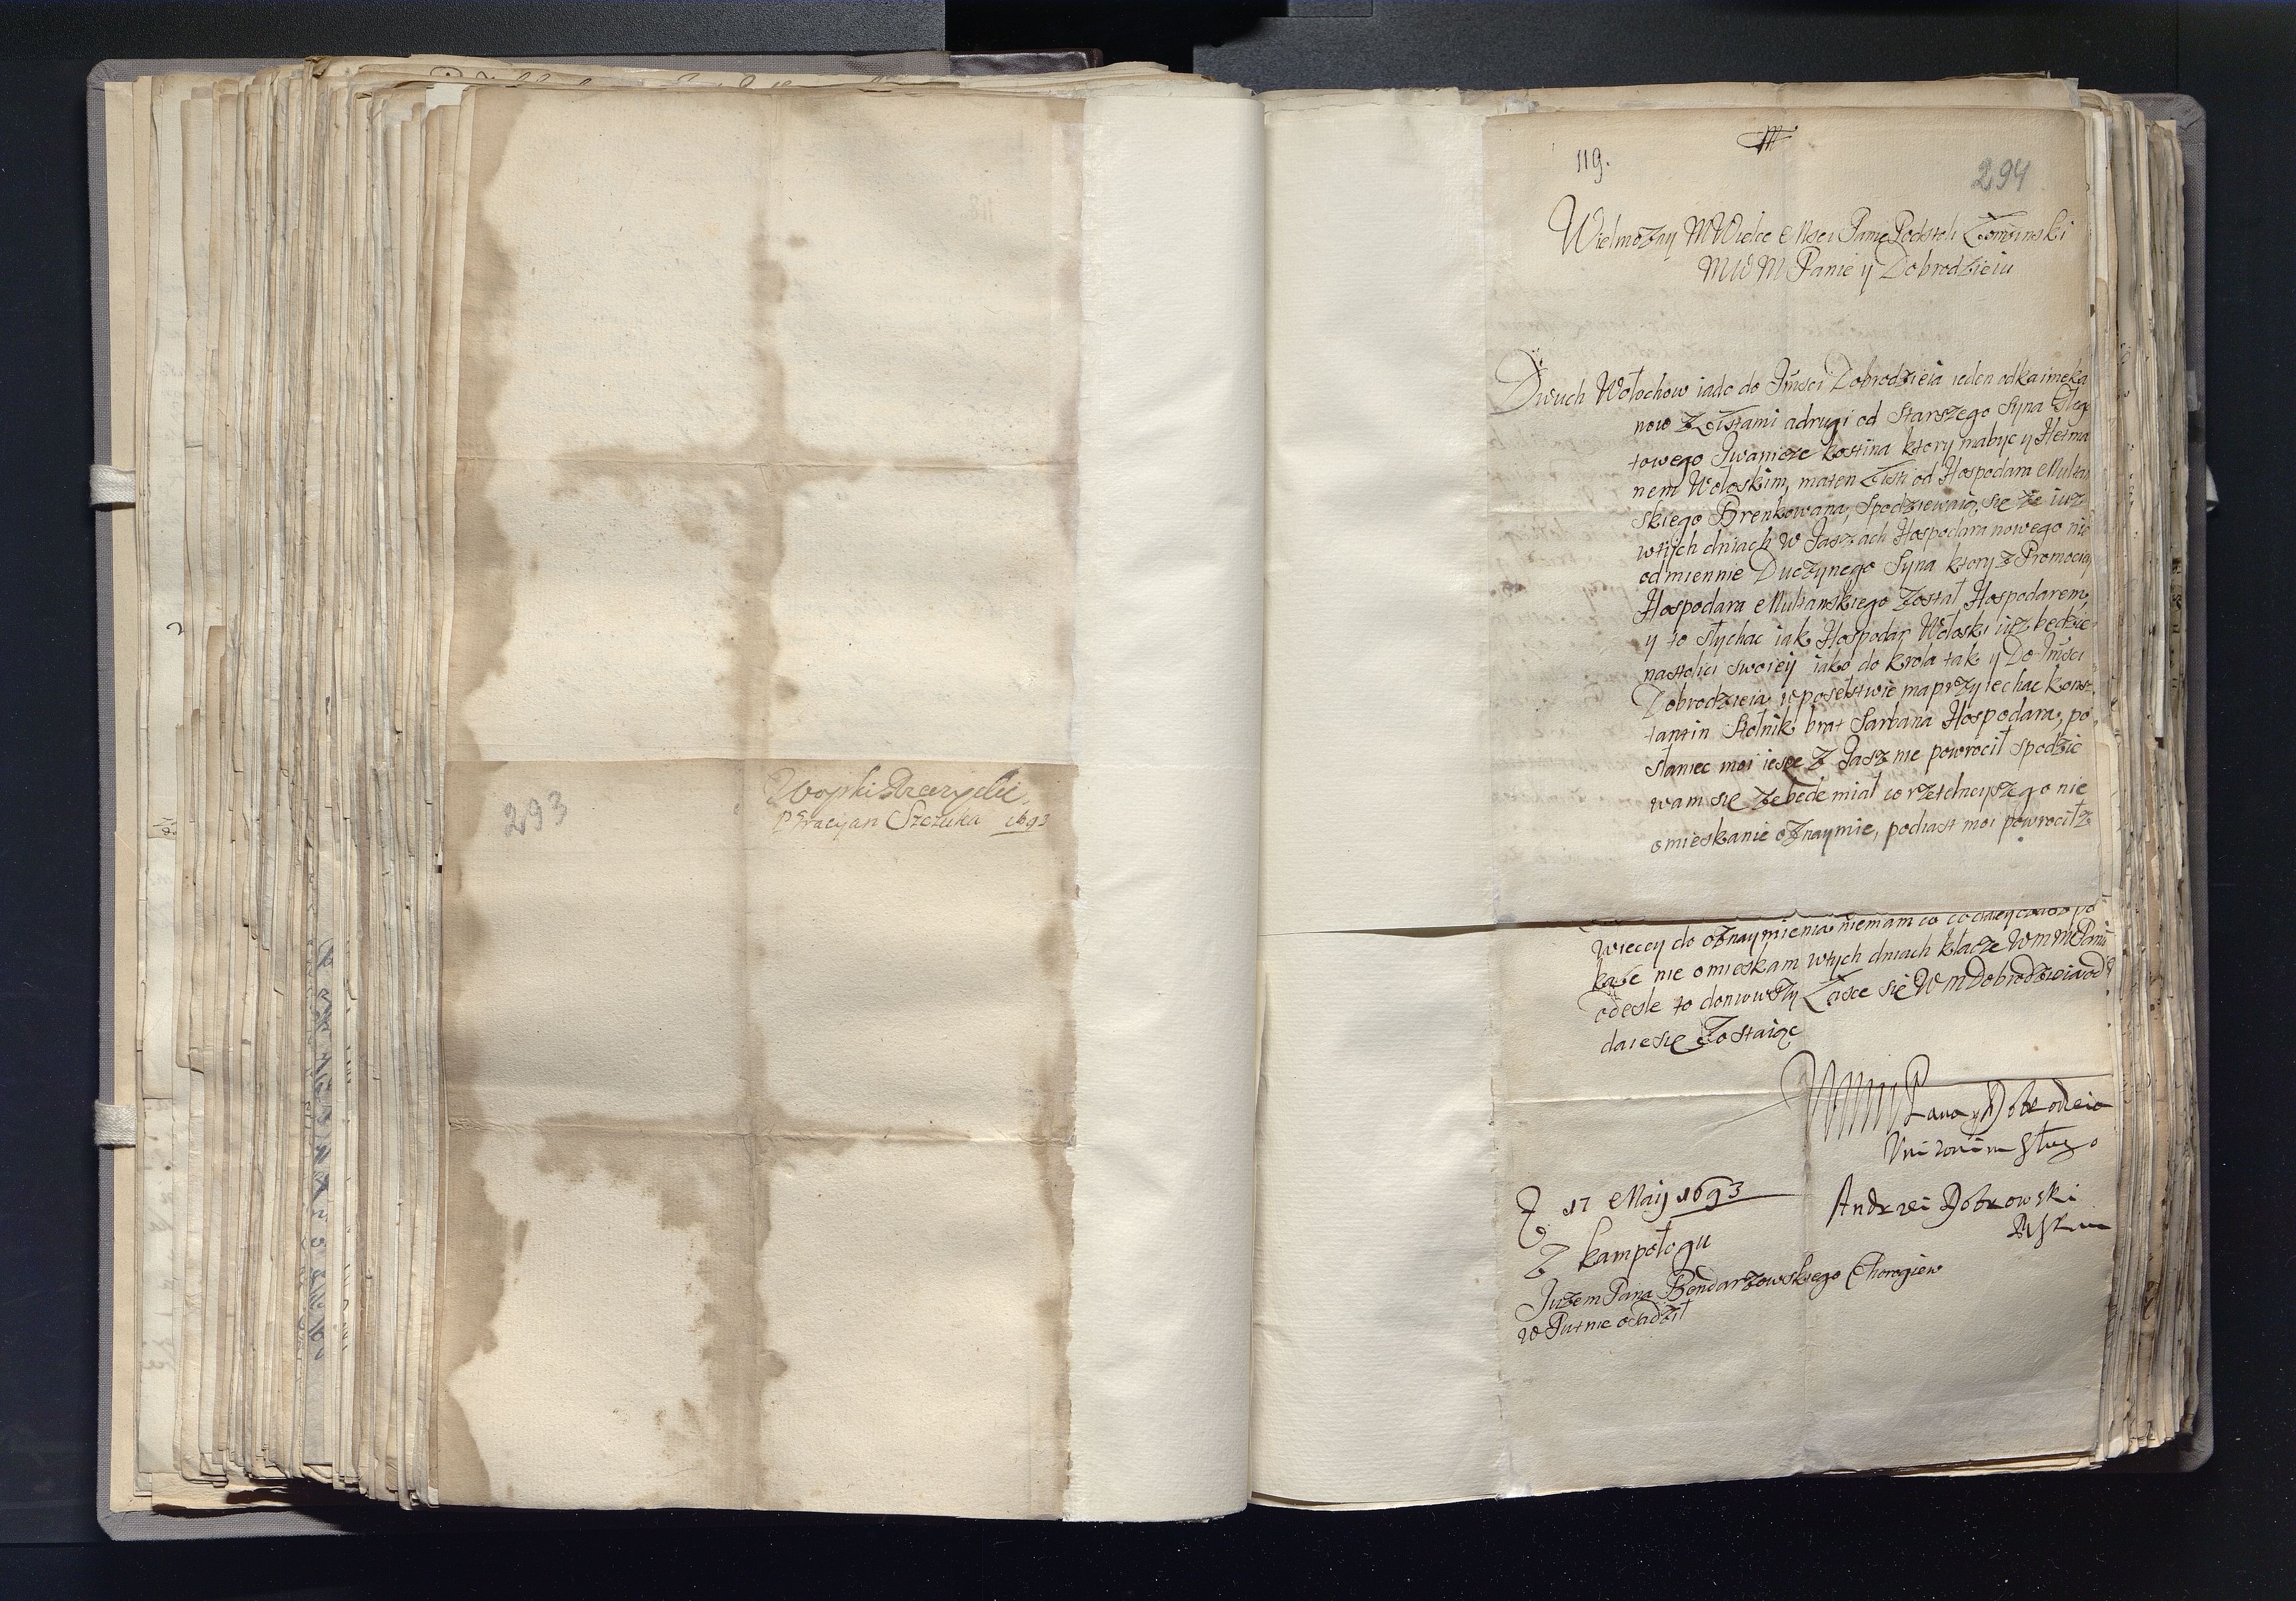 293
Wojski
Pracyjan Szczuka 1693
119.
294
Wielmożny MWielce Msci Panie Podstoli
MWM Panie y Dobrodzieiu
Dwuch Wołochow iade do Jmsci Dobrodzieia ieden od kaimeka
now z Listami a drugi od Starszego Syna
towego Iwanicze kostina ktory ma byc y Hetma
nem Wołoskim, ma ten Listi od Hospodara Multan
skiego Brenkowana, Spodziewaią się że iusz
w tych dniach w Jaszach Hospodara nowego nie
odmiennie Duczynego Syna ktory z Promociey
Hospodara Multanskiego został Hospodarem,
y to słychac iak Hospodar Wołoski iusz bedzie
na stolici swoiey iako do krola tak y Do Jmsci
Dobrodzieia w poselstwie ma przyiechac konst
tantin Stolnik brat Sarbana Hospodara, po
słaniec moi iescze z Jasz nie powrocił spodzie
wam się że bede miał co rzetelneyszego nie
omieskanie oznaymie, podiast moi powrocił z
wiecey do oznaymienia niemam co
każe nie omieskam w tych dniach klacze WMM Panu
odesle to doniowszy Łasce się WM Dobrodzieia od
daie się zostaiąc
WMM Pana y Dobrodzieia
Uniżonim Sługo
Andrzei Dobrowski
17 Maij 1693
Z kampołogu
Jużem Pana Bendarzowskiego Chorągiew
w Putnie osadził